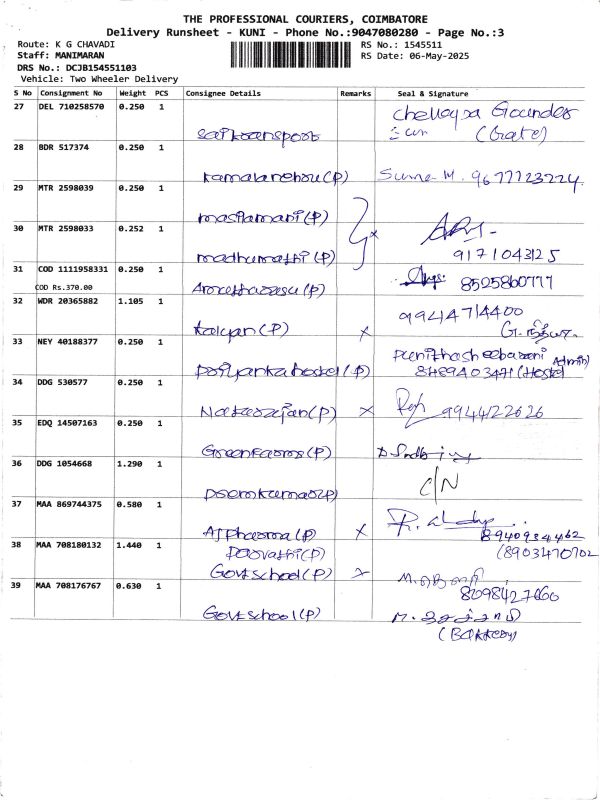 THE PROFESSIONAL COURIERS, COIMBATORE
Delivery Runsheet - KUNI - Phone No.:9047080280 - Page No.:3
Route: K G CHAVADI
RS No.: 1545511
Staff: MANIMARAN
RS Date: 06-May-2025
DRS No.: DCJB154551103
Vehicle: Two Wheeler Delivery
S No Consignment No Weight PCS Consignee Details Remarks Seal & Signature
27 DEL 710258570 0.250 1
(Gate)
28 BDR 517374 0.250 1
(P) M. 9677723224
29 MTR 2598039 0.250 1
masilamani (P)
30 MTR 2598033 0.252 1
madhumathi (P) x 9171043125
31 COD 1111958331 0.250 1
COD Rs.370.00
(P) 8525860777
32 WDR 20365882 1.105 1
9944714400
Kalyan (P) x
33 NEY 40188377 0.250 1
Priyanka hostel (P) (Hostel Admin)
34 DDG 530577 0.250 1
Natarajan (P) x 9944422626
35 EDQ 14507163 0.250 1
Greenfarms (P)
36 DDG 1054668 1.290 1
Premkumar (P) C/N
37 MAA 869744375 0.580 1
AJ pharma (P) x 8940934462
38 MAA 708180132 1.440 1
Parvathi (P) (8903470702
Govt school (P) x
39 MAA 708176767 0.630 1
8098427660
Govt school (P)
(Bakkery)